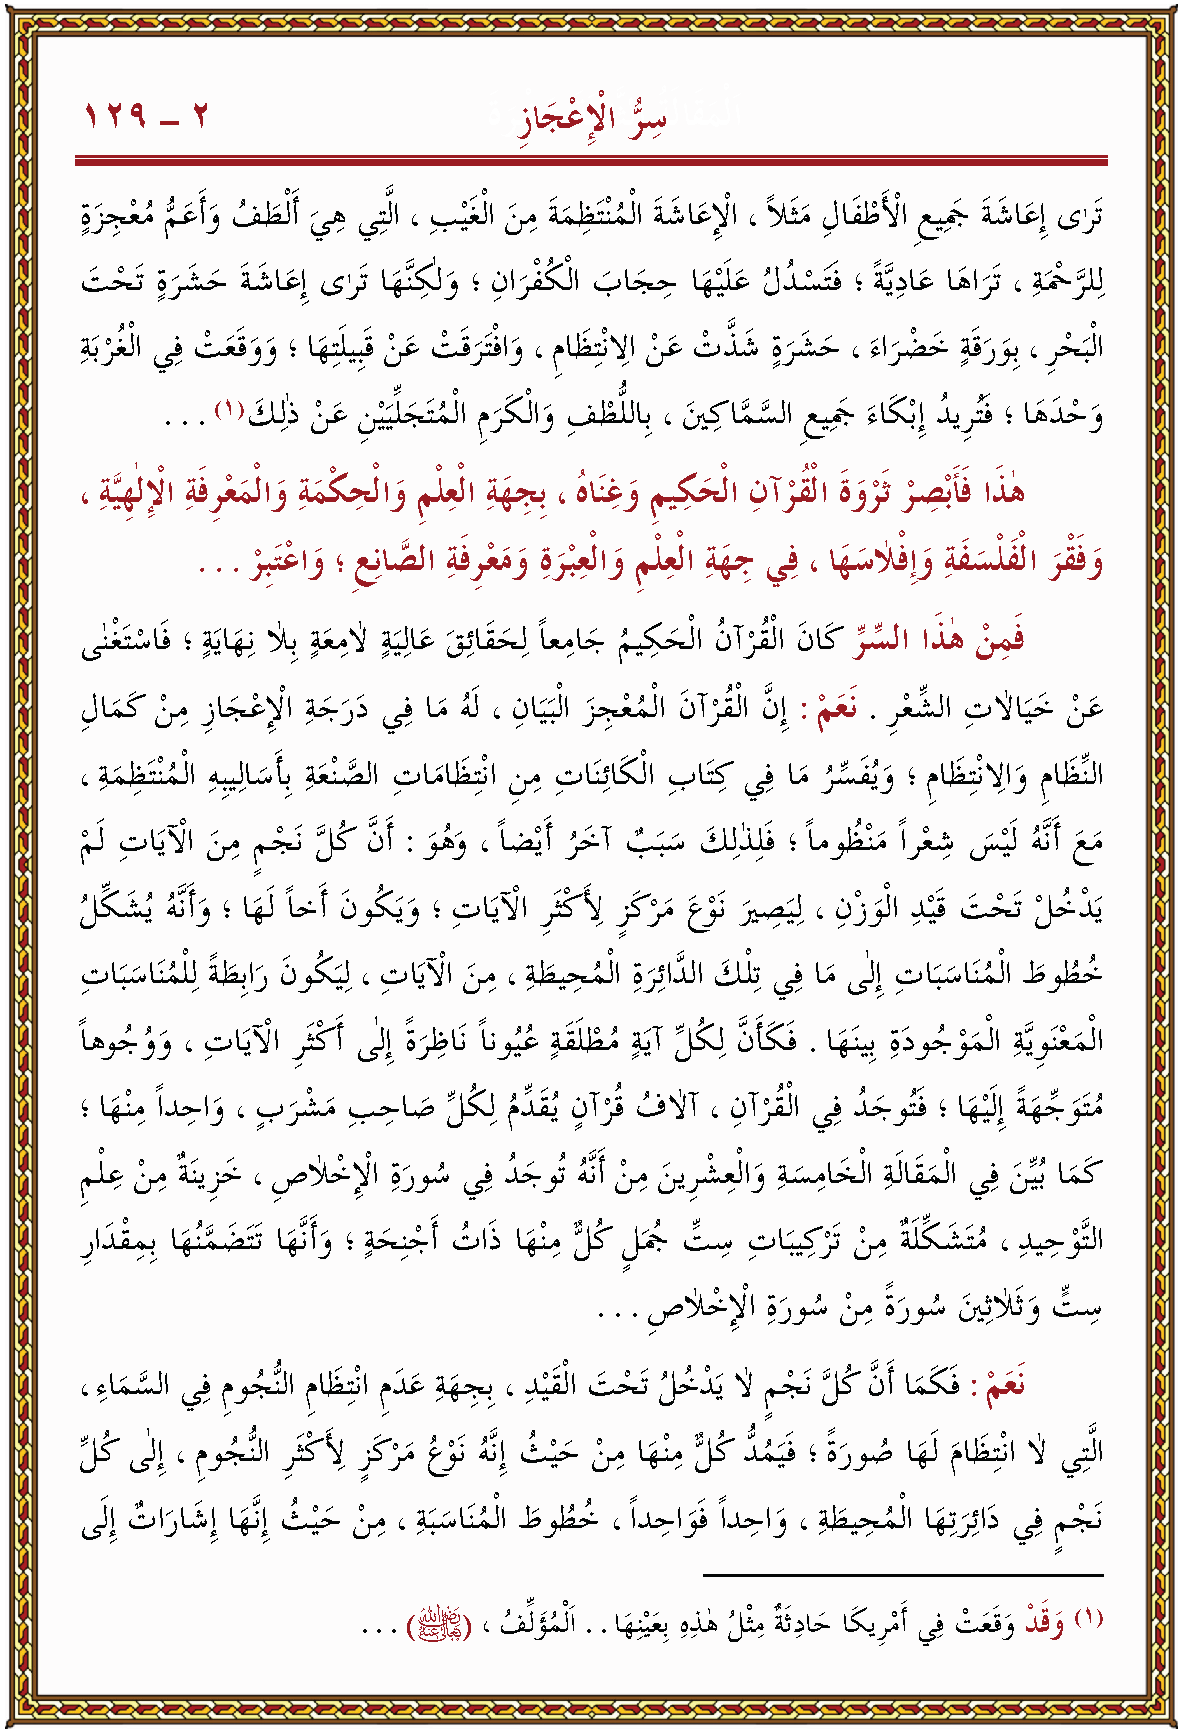 سِرُّ الْإِعْجَازِ ٢ – ١٢٩
تَرٰى إِعَاشَةَ جَمِيعِ الْأَطْفَالِ مَثَلاً ، الْإِعَاشَةَ الْمُنْتَظِمَةَ مِنَ الْغَيْبِ ، الَّتِي هِيَ أَلْطَفُ وَأَعَمُّ مُعْجِزَةٍ
لِلرَّحْمَةِ ، تَرَاهَا عَادِيَّةً ؛ فَتَسْدُلُ عَلَيْهَا حِجَابَ الْكُفْرَانِ ؛ وَلٰكِنَّهَا تَرٰى إِعَاشَةَ حَشَرَةٍ تَحْتَ
الْبَحْرِ ، بِوَرَقَةٍ خَضْرَاءَ ، حَشَرَةٍ شَذَّتْ عَنْ الِانْتِظَامِ ، وَافْتَرَقَتْ عَنْ قَبِيلَتِهَا ؛ وَوَقَعَتْ فِي الْغُرْبَةِ
وَحْدَهَا ؛ فَتُرِيدُ إِبْكَاءَ جَمِيعِ السَّمَّاكِينَ ، بِاللُّطْفِ وَالْكَرَمِ الْمُتَجَلِّيَيْنِ عَنْ ذٰلِكَ (١) . . .
هٰذَا فَأَبْصِرْ ثَرْوَةَ الْقُرْآنِ الْحَكِيمِ وَغِنَاهُ ، بِجِهَةِ الْعِلْمِ وَالْحِكْمَةِ وَالْمَعْرِفَةِ الْإِلٰهِيَّةِ ،
وَفَقْرَ الْفَلْسَفَةِ وَإِفْلَاسَهَا ، فِي جِهَةِ الْعِلْمِ وَالْعِبْرَةِ وَمَعْرِفَةِ الصَّانِعِ ؛ وَاعْتَبِرْ . . .
فَمِنْ هٰذَا السِّرِّ كَانَ الْقُرْآنُ الْحَكِيمُ جَامِعاً لِحَقَائِقَ عَالِيَةٍ لَامِعَةٍ بِلَا نِهَايَةٍ ؛ فَاسْتَغْنٰى
عَنْ خَيَالَاتِ الشِّعْرِ . نَعَمْ : إِنَّ الْقُرْآنَ الْمُعْجِزَ الْبَيَانِ ، لَهُ مَا فِي دَرَجَةِ الْإِعْجَازِ مِنْ كَمَالِ
النِّظَامِ وَالِانْتِظَامِ ؛ وَيُفَسِّرُ مَا فِي كِتَابِ الْكَائِنَاتِ مِنِ انْتِظَامَاتِ الصَّنْعَةِ بِأَسَالِيبِهِ الْمُنْتَظِمَةِ ،
مَعَ أَنَّهُ لَيْسَ شِعْراً مَنْظُوماً ؛ فَلِذٰلِكَ سَبَبٌ آخَرُ أَيْضاً ، وَهُوَ : أَنَّ كُلَّ نَجْمٍ مِنَ الْآيَاتِ لَمْ
يَدْخُلْ تَحْتَ قَيْدِ الْوَزْنِ ، لِيَصِيرَ نَوْعَ مَرْكَزٍ لِأَكْثَرِ الْآيَاتِ ؛ وَيَكُونَ أَخاً لَهَا ؛ وَأَنَّهُ يُشَكِّلُ
خُطُوطَ الْمُنَاسَبَاتِ إِلٰى مَا فِي تِلْكَ الدَّائِرَةِ الْمُحِيطَةِ ، مِنَ الْآيَاتِ ، لِيَكُونَ رَابِطَةً لِلْمُنَاسَبَاتِ
الْمَعْنَوِيَّةِ الْمَوْجُودَةِ بِينَهَا . فَكَأَنَّ لِكُلِّ آيَةٍ مُطْلَقَةٍ عُيُوناً نَاظِرَةً إِلٰى أَكْثَرِ الْآيَاتِ ، وَوُجُوهاً
مُتَوَجِّهَةً إِلَيْهَا ؛ فَتُوجَدُ فِي الْقُرْآنِ ، آلَافُ قُرْآنٍ يُقَدِّمُ لِكُلِّ صَاحِبِ مَشْرَبٍ ، وَاحِداً مِنْهَا ؛
كَمَا بُيِّنَ فِي الْمَقَالَةِ الْخَامِسَةِ وَالْعِشْرِينَ مِنْ أَنَّهُ تُوجَدُ فِي سُورَةِ الْإِخْلَاصِ ، خَزِينَةٌ مِنْ عِلْمِ
التَّوْحِيدِ ، مُتَشَكِّلَةٌ مِنْ تَرْكِيبَاتِ سِتِّ جُمَلٍ كُلٌّ مِنْهَا ذَاتُ أَجْنِحَةٍ ؛ وَأَنَّهَا تَتَضَمَّنُهَا بِمِقْدَارِ
سِتٍّ وَثَلَاثِينَ سُورَةً مِنْ سُورَةِ الْإِخْلَاصِ . . .
نَعَمْ : فَكَمَا أَنَّ كُلَّ نَجْمٍ لَا يَدْخُلُ تَحْتَ الْقَيْدِ ، بِجِهَةِ عَدَمِ انْتِظَامِ النُّجُومِ فِي السَّمَاءِ ،
الَّتِي لَا انْتِظَامَ لَهَا صُورَةً ؛ فَيَمُدُّ كُلٌّ مِنْهَا مِنْ حَيْثُ إِنَّهُ نَوْعُ مَرْكَزٍ لِأَكْثَرِ النُّجُومِ ، إِلٰى كُلِّ
نَجْمٍ فِي دَائِرَتِهَا الْمُحِيطَةِ ، وَاحِداً فَوَاحِداً ، خُطُوطَ الْمُنَاسَبَةِ ، مِنْ حَيْثُ إِنَّهَا إِشَارَاتٌ إِلَى
(١) وَقَدْ وَقَعَتْ فِي أَمْرِيكَا حَادِثَةٌ مِثْلُ هٰذِهِ بِعَيْنِهَا . . اَلْمُؤَلِّفُ ، (رَضِيَ اللهُ تَعَالَى عَنْهُ) . . .